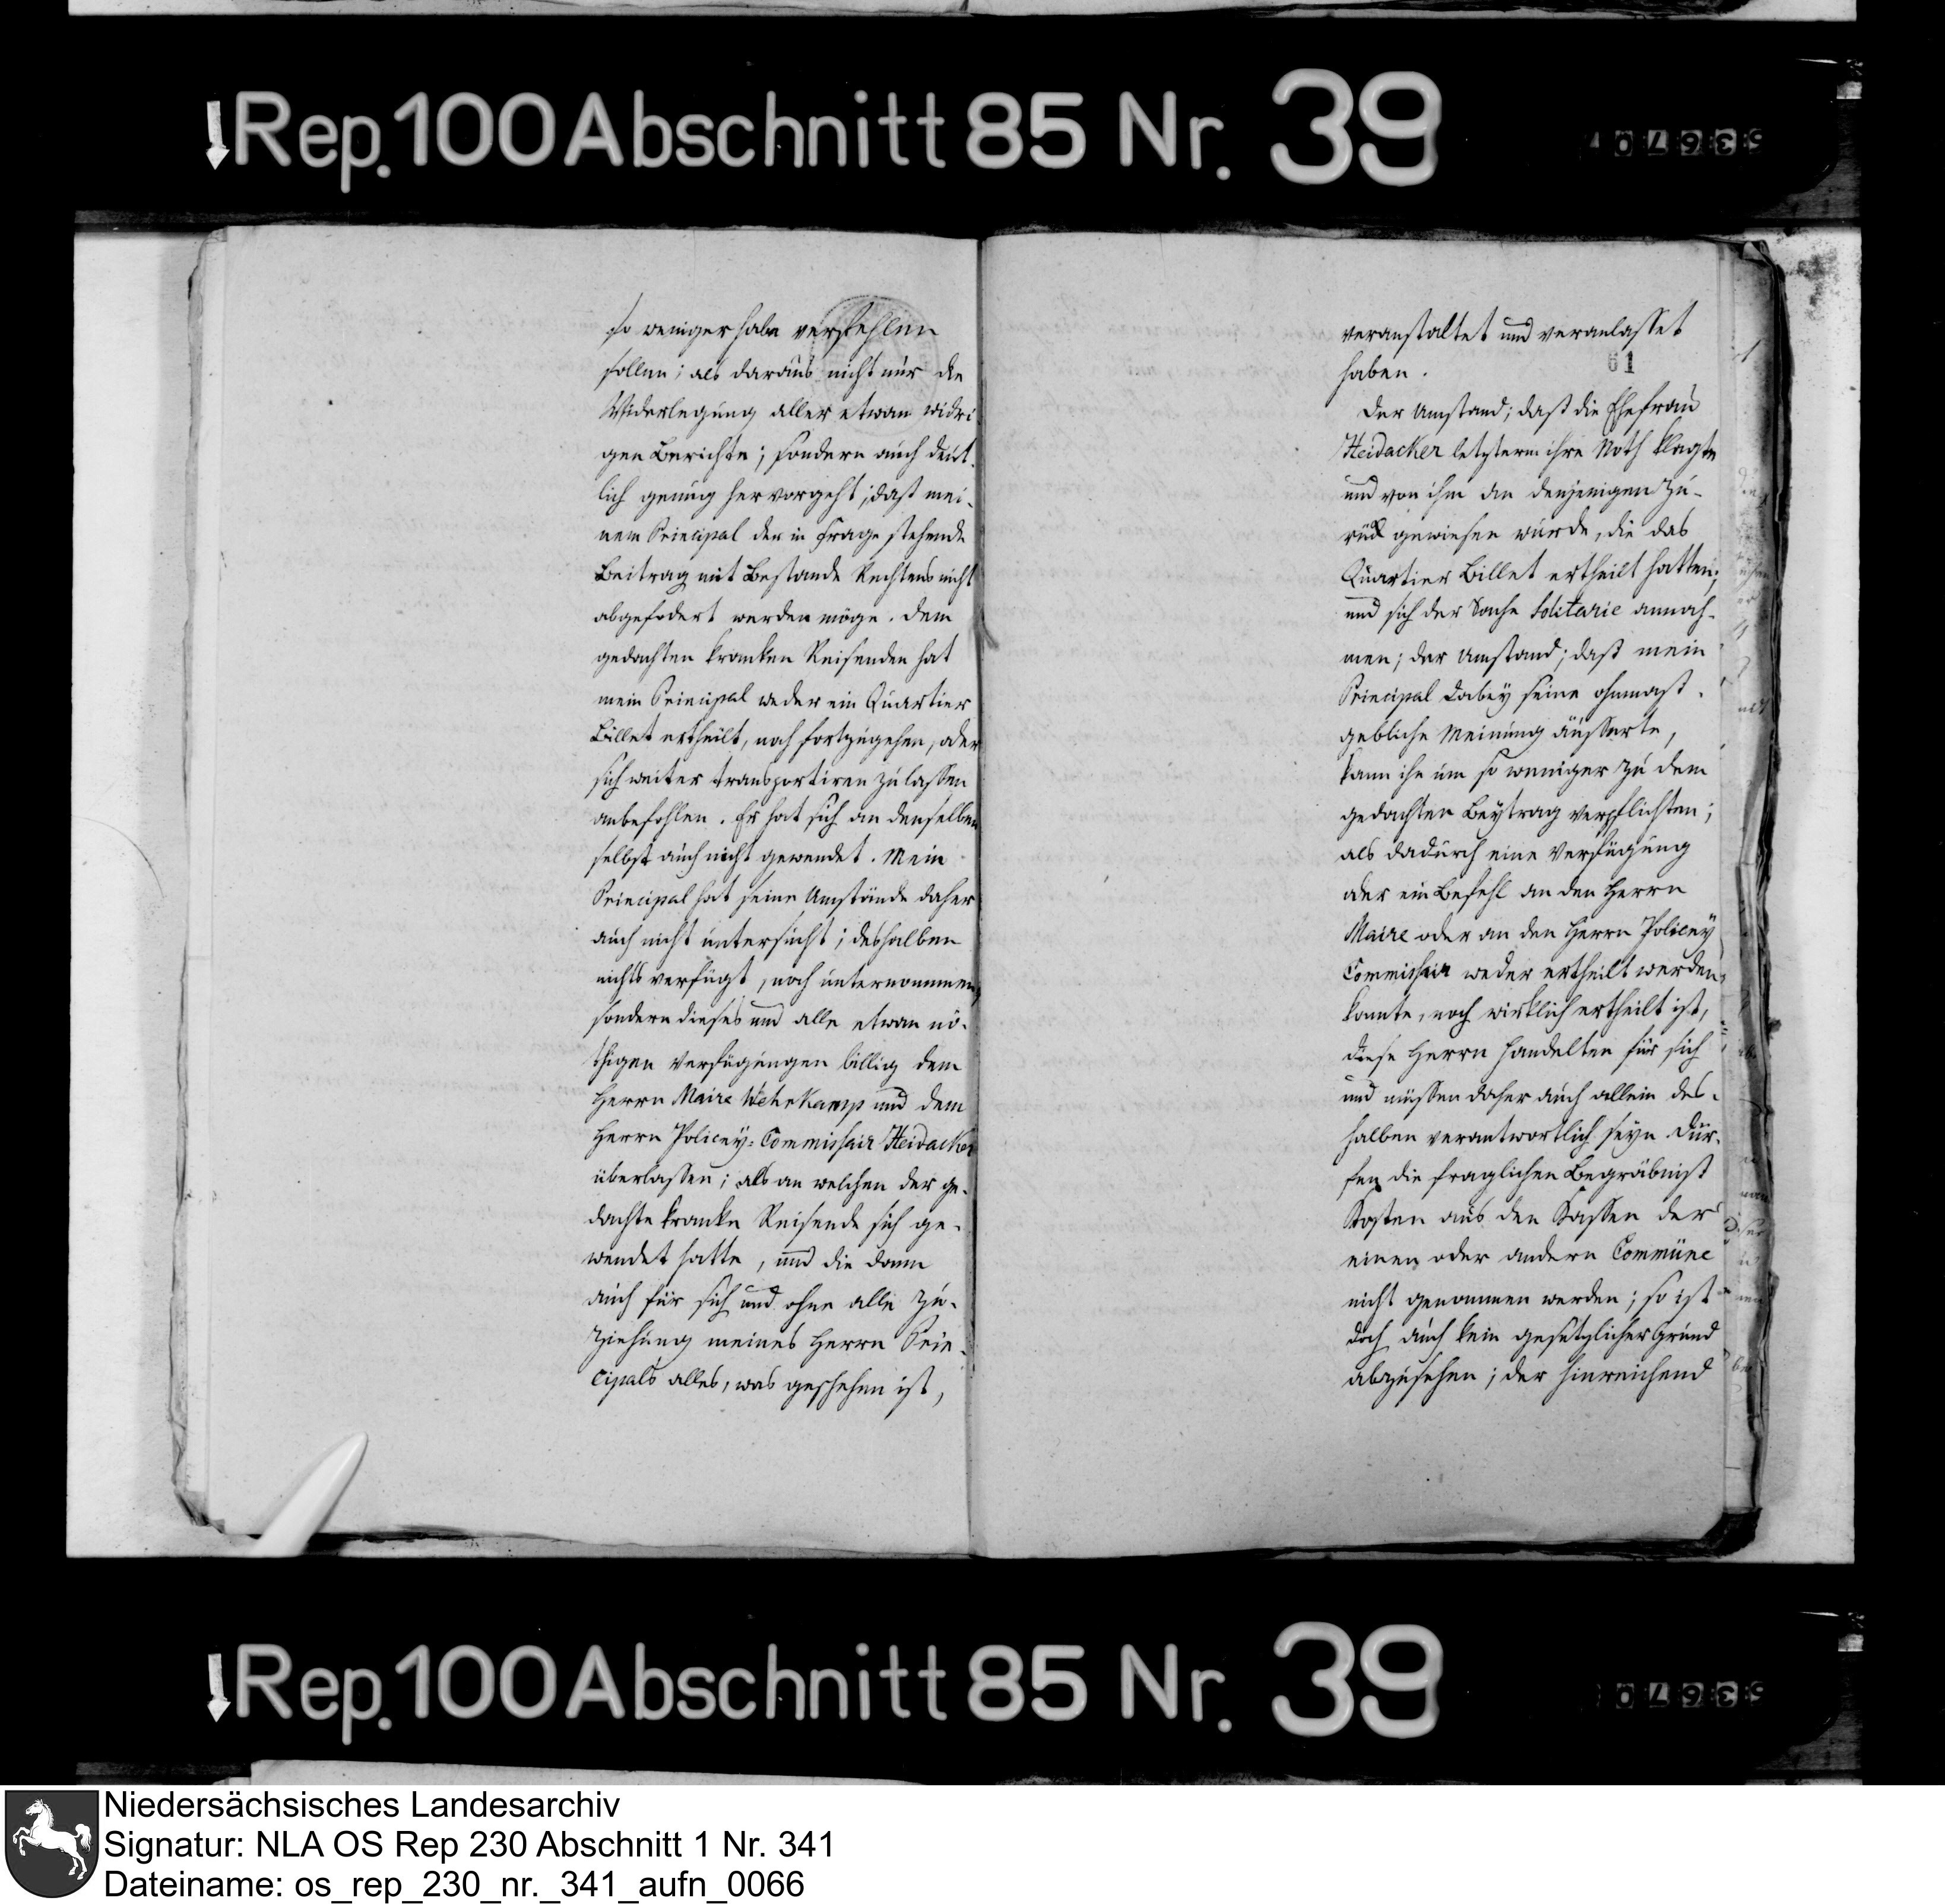 Rep. 100 Abschnitt 85 Nr. 39
so weniger habe verfehlen
sollen; als daraus nicht nur die
Widerlegung aller etwan widri-
gen Berichte; sondern auch deut-
lich genug hervorgeht; daß mei-
nem Principal der in Frage stehende
Beitrag mit Bestande Rechtens nicht
abgefodert werden möge. Dem
gedachten kranken Reisenden hat
mein Principal weder ein Quartier
Billet ertheilt, noch fortzugehen, oder
sich weiter transportiren zu lassen
anbefohlen. Er hat sich an denselben
selbst auch nicht gewendet. Mein
Principal hat seine Umstände daher
auch nicht untersucht; deshalben
nichts verfügt, noch unternommen,
sondern dieses und alle etwan nö-
thigen Verfügungen billig dem
Herrn Maire Wehrkamp und dem
Herrn Policey-Commissair Heidacker
überlassen; als an welchen der ge-
dachte kranke Reisende sich ge-
wendet hatte, und die dann
auch für sich und ohne alle Zu-
ziehung meines Herrn Prin-
cipals alles, was geschehen ist,
veranstaltet und veranlasset
61
haben.
Der Umstand; daß die Ehefrau
Heidacker letzterm ihre Noth klagte
und von ihm an denjenigen zu-
rück gewiesen wurde, die das
Quartier Billet ertheilt hatten;
und sich der Sache solitarie annah-
men; der Umstand; daß mein
Principal dabey seine ohnmast-
gebliche Meinung äusserte,
kann ihn um so weniger zu dem
gedachten Beytrag verpflichten;
als dadurch eine Verfügung
oder ein Befehl an den Herrn
Maire oder an den Herrn Policey
Commissair weder ertheilt werden
konnte, noch wirklich ertheilt ist,
diese Herrn handelten für sich
und müssen daher auch allein des-
halben verantwortlich seyn. Dür-
fen die fraglichen Begräbnist
Kosten aus den Kassen der
einen oder andern Commüne
nicht genommen werden; so ist
doch auch kein gesetzlicher Grund
abzusehen; der hinreichend
Rep. 100 Abschnitt 85 Nr. 39
Niedersächsisches Landesarchiv
Signatur: NLA OS Rep 230 Abschnitt 1 Nr. 341
Dateiname: os_rep_230_nr._341_aufn_0066